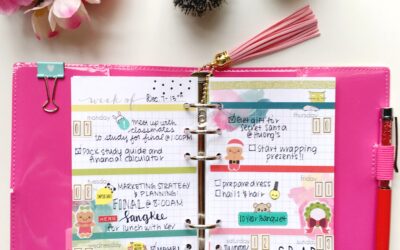 week of Dec. 7-13th
monday
Meet up with
classmates
to study for final @ 1:00PM
Pack study guide and
financial calculator
tuesday
MARKETING STRATEGY
& PLANNING
FINAL @ 8:00AM
Sangkee
for lunch with Kev
wednesday
thursday
Get gift for
Secret Santa
@ Huong's
Start wrapping
presents!!
friday
prepare dress
nails & hair
10 Year Banquet
saturday
sunday